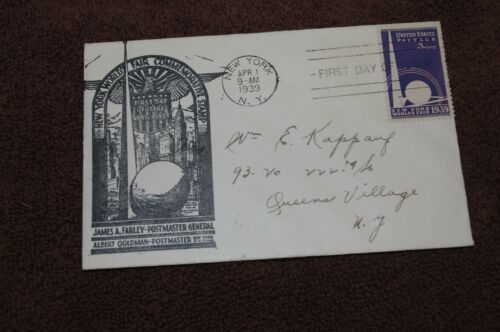 NEW YORK WORLD'S FAIR COMMEMORATIVE STAMP
FIRST DAY
JAMES A. FARLEY-POSTMASTER GENERAL
ALBERT GOLDMAN-POSTMASTER
NEW YORK
APR 1
9-AM
1939
N.Y.
FIRST DAY OF
UNITED STATES
POSTAGE
3 CENTS
NEW YORK
WORLD'S FAIR 1939
Wm E. Kappauf
93-20 222nd St
Queens Village
N.Y